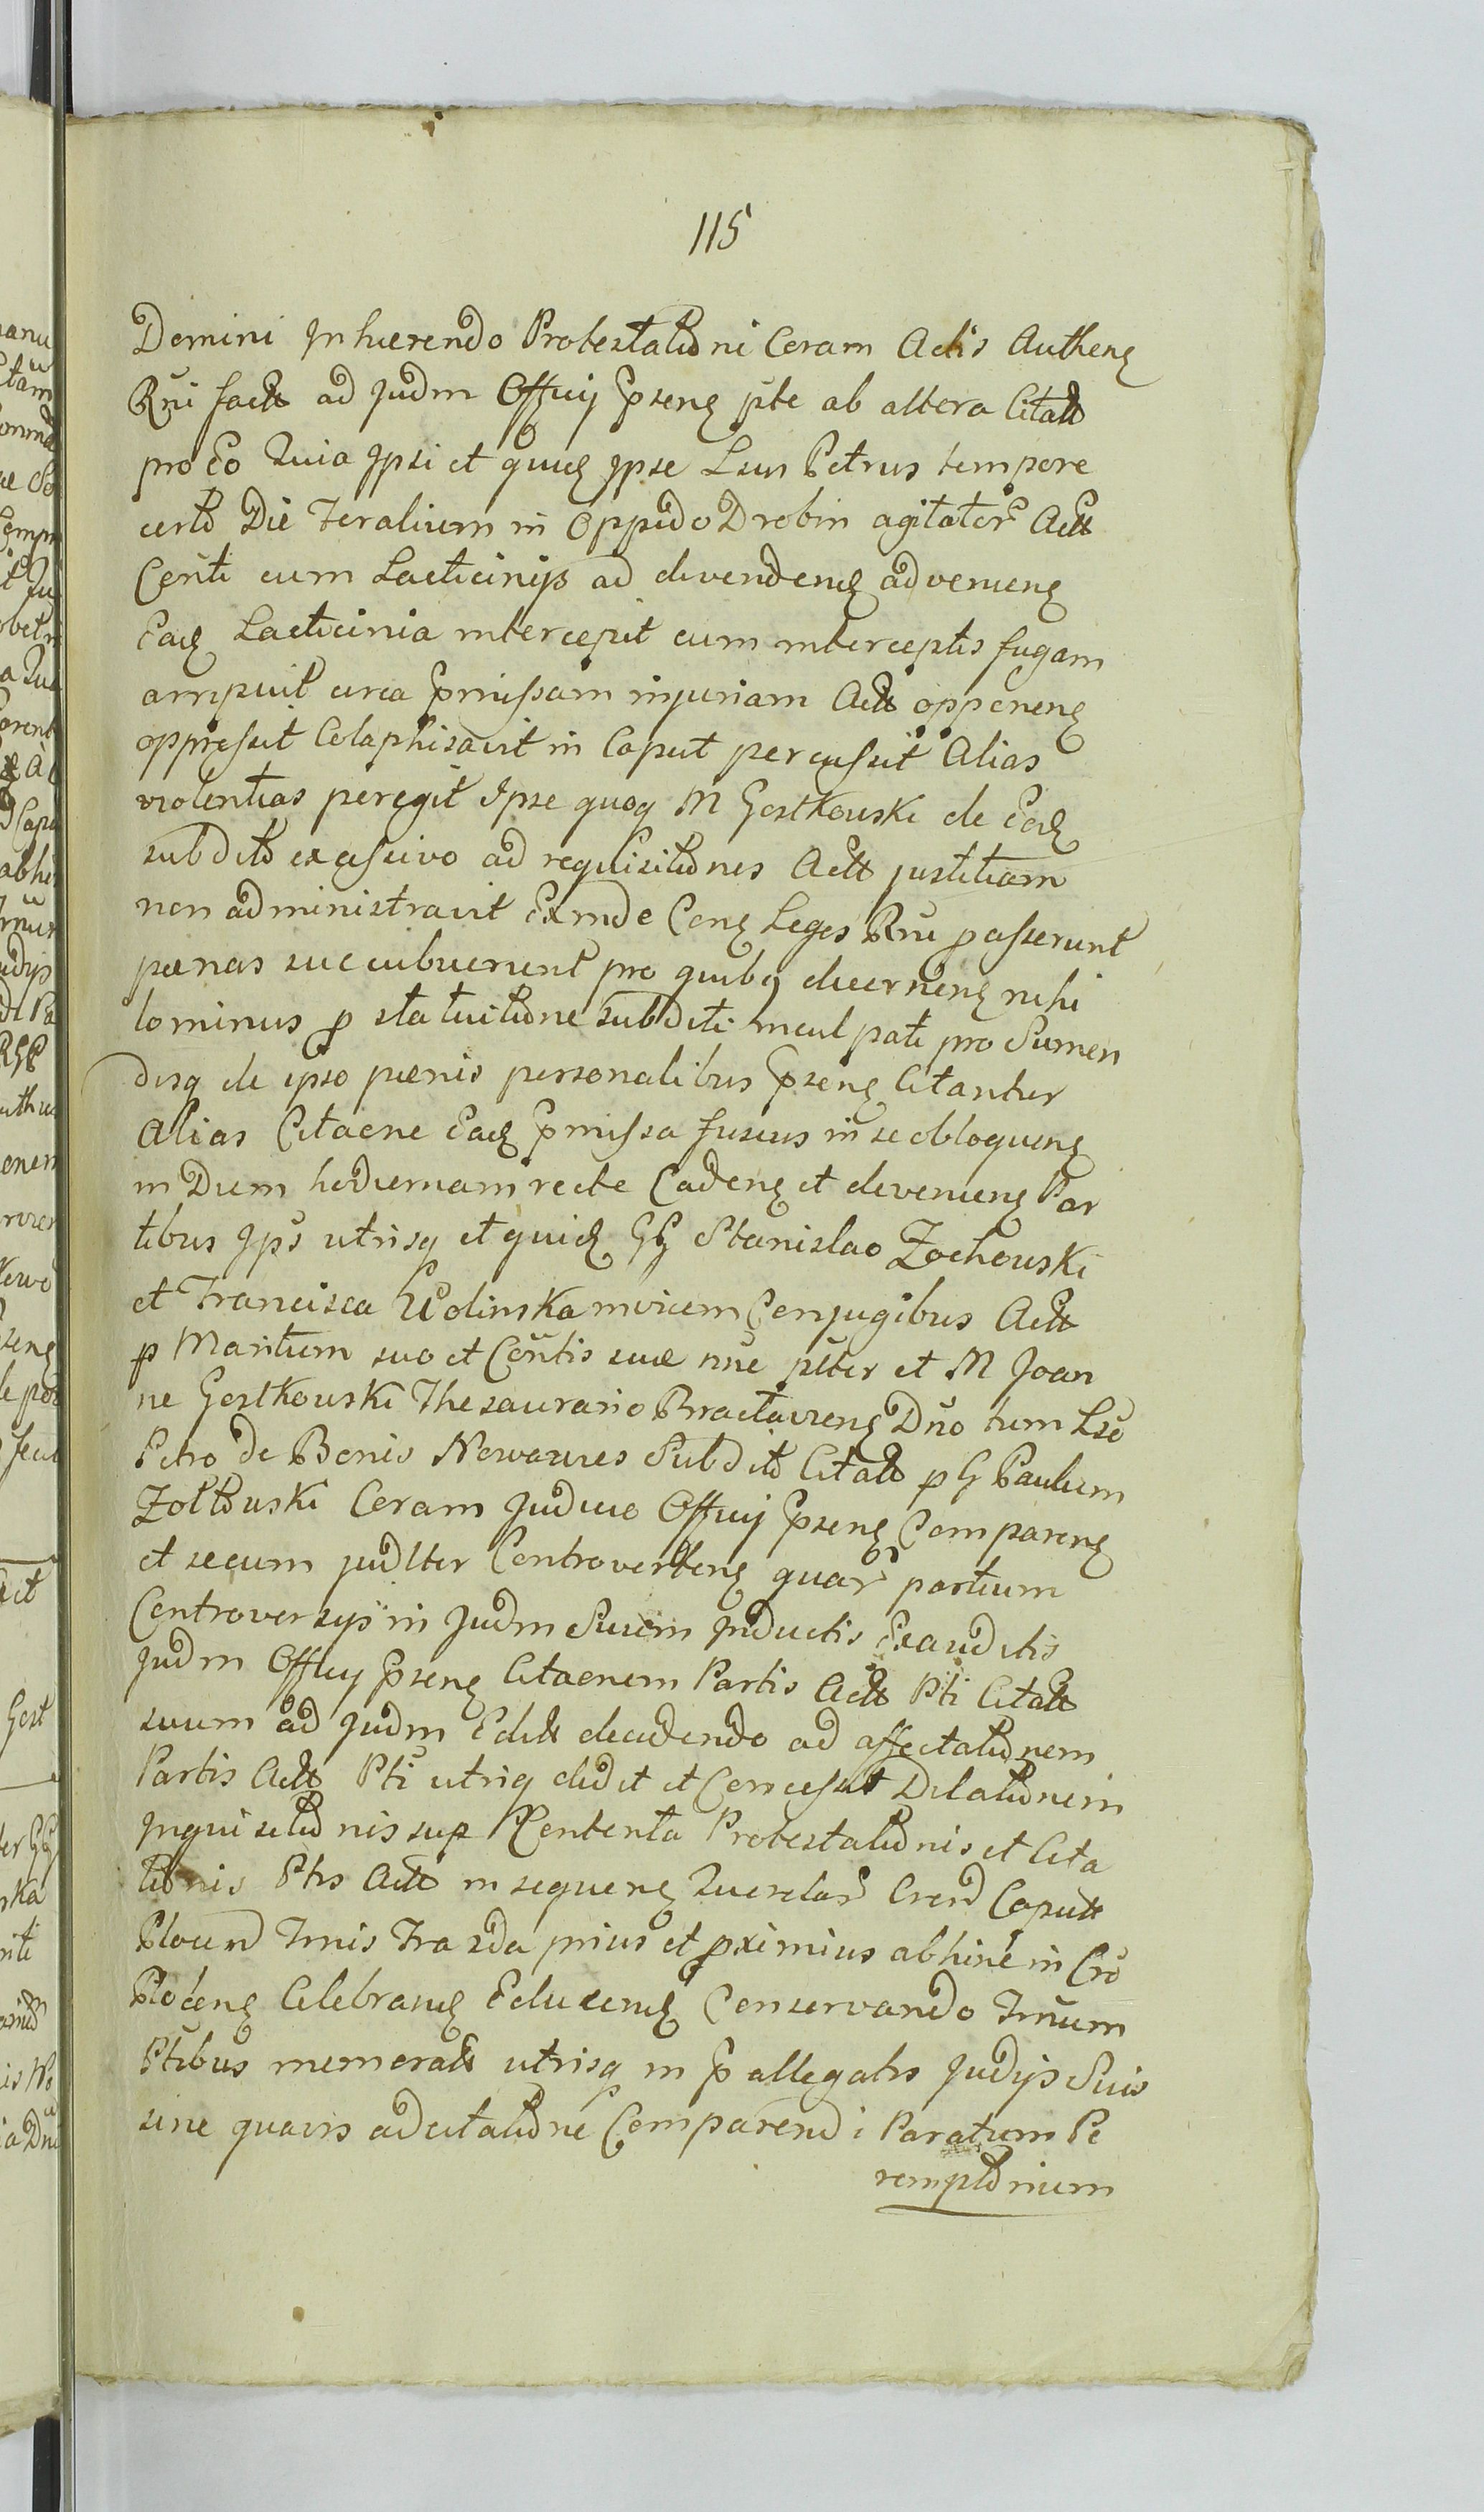 115
Domini Inhærendo Protestationi Coram Actis Authenq
Rñi factt ad Judm Offcij Pseng pte ab altera Citatt
pro Eo Quia Ipsi et quidq Ipse Lsus Petrus tempore
certo Die Feralium in Oppido Drobin agitator Actt
Cõnti cum Lacticinijs ad divendendq advenienq
Eadq Lacticinia intercepit cum interceptis fugam
arripuit circa Pmissam injuriam Actt opponenq
oppressit Colaphisavit in Caput percussit Alias
violentias peregit Ipse quoq M Gostkouski de Eodq
subdito excessivo ad requisitiones Actt justitiam
non administravit Exinde Conq Leges Rni p asserunt
pœnas succubuerunt pro quibq decernenq nihi
lominus p statuitione subditi inculpati pro Sumen
disq de ipso pœnis personalibus Psenq Citantur
Alias Citaone Eadq Pmissa fusius in se obloquenq
in Diem hodiernam recte Cadenq et devenienq Par
tibus Ips utrisq et quidq GG Stanislao Zochouski
et Francisca Wolinska invicem Conjugibus Actt
p Maritum suo et Cõntis suæ nñe pltter et M Joan
ne Gostkouski Thesaurario Bractavienq Dño tum Lsõ
Petro de Bonis Nowawies Subdito Citatt p G Paulum
Zołtouski Coram Judicio Offcij Psenq Comparenq
et secum judltter Controvertenq quar partium
Controversijs in Judm Suum Inductis Exauditis
Judm Offcij Psenq Citaonem Partis Actt Pti Citatt
suum ad Judm Editt decidendo ad affectationem
Partis Actt Pti utriq dedit et Concessit Dilationem
Inquisitionis sup Contenta Protestationis et Cita
tionis Ptis Actt in sequenq Querelar Crend Capitt
Plocen Tmis Trazda prius et pximius abhinc in Crõ
Plocenq Celebrandq Educendq Conservando Tmum
Ptibus memoratt utrisq in P allegatis Judijs Suis
sine quavis adcitatione Comparendi Paratum Pe
remptorium